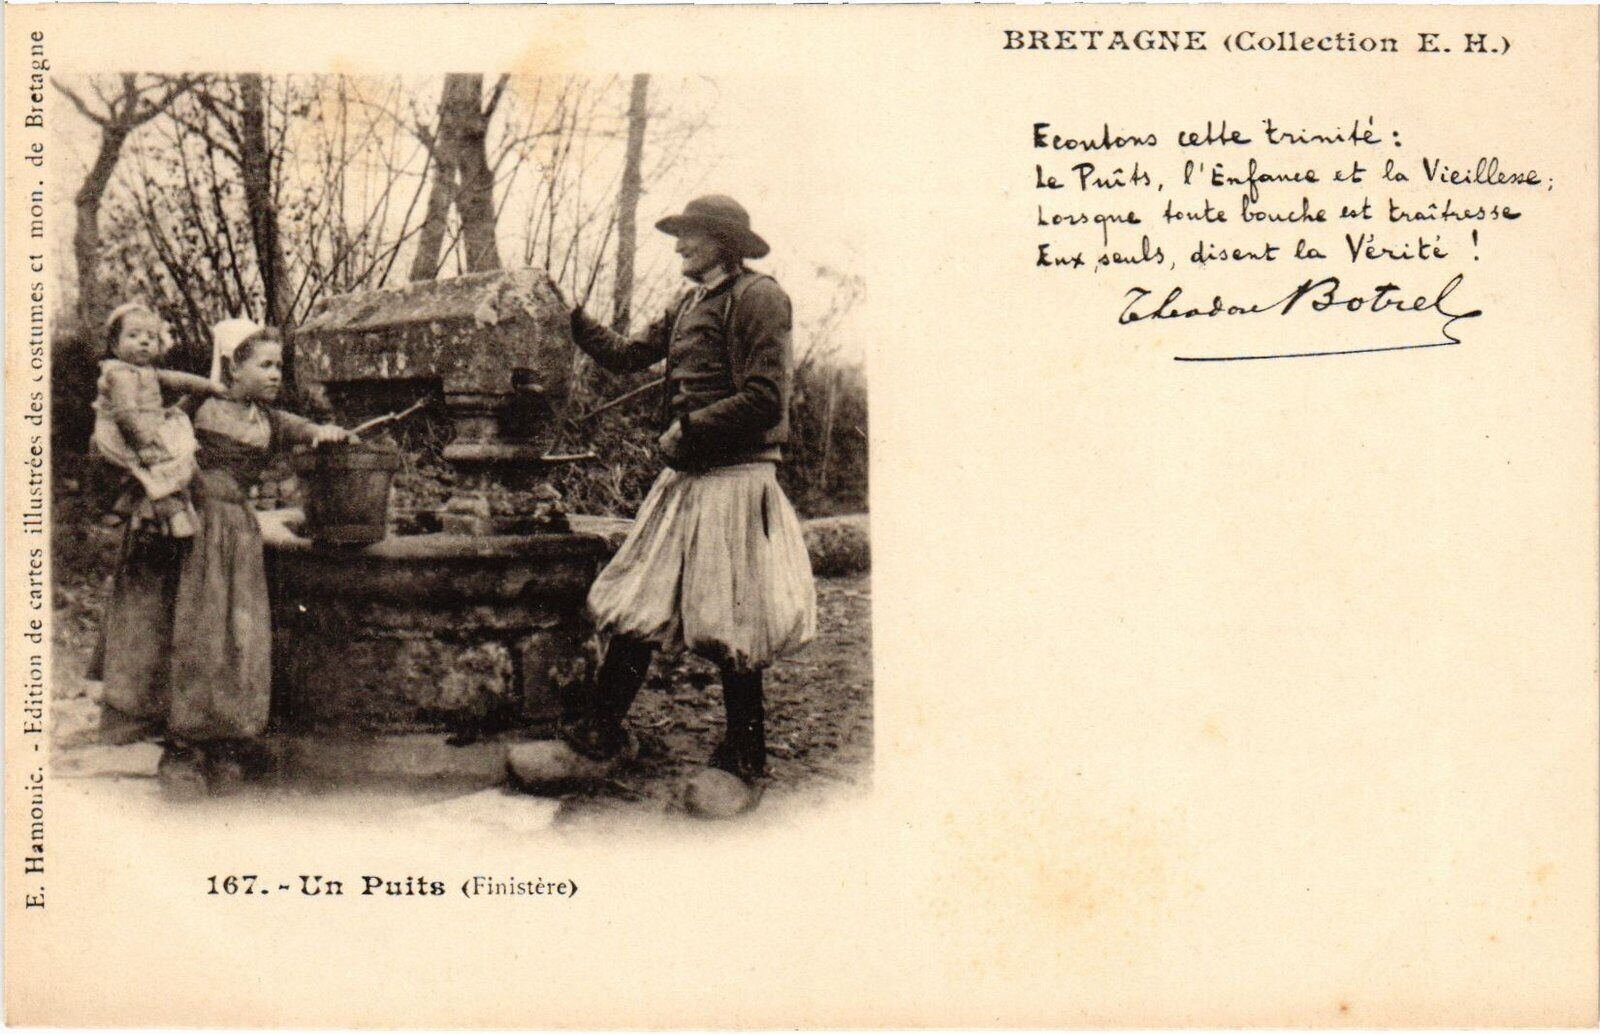 BRETAGNE (Collection E. H.)
Ecoutons cette trinité :
Le Puîts, l'Enfance et la Vieillesse ;
Lorsque toute bouche est traîtresse
Eux, seuls, disent la Vérité !
Théodore Botrel
E. Hamonic. - Edition de cartes illustrées des costumes et mon. de Bretagne
167. - Un Puits (Finistère)